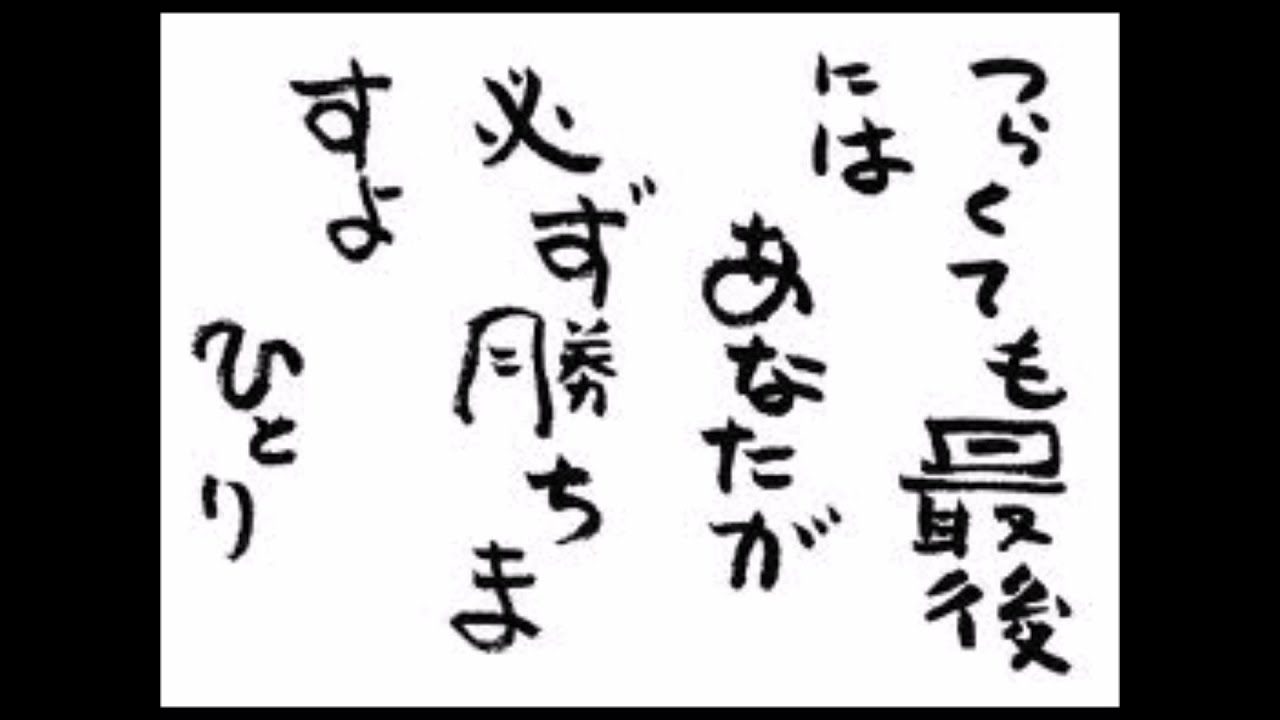 つらくても最後
には
あなたが
必ず勝ちま
すよ
ひとり